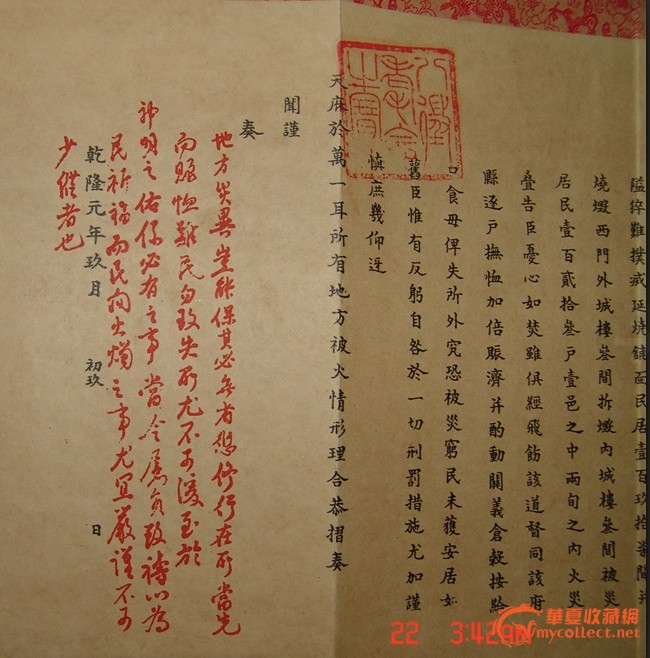 隘猝難撲滅延燒舖面民居壹百玖拾 間并
燒燬西門外城樓叄間拆燬內城樓叄間被災
居民壹百貳拾叄戶壹邑之中兩旬之內火災
疊告臣憂心如焚雖俱經飛飭該道督同該府
縣逐戶撫恤加倍賑濟并酌動關義倉穀按
口食毋俾失所外究恐被災窮民未獲安居如
舊臣惟有反躬自咎於一切刑罰措施尤加謹
慎庶幾仰迓
天庥於萬一耳所有地方被火情形理合恭摺奏
聞謹
奏
八徵耄念之寶
地方災異豈能保其必無省愆修行在所當先
而賑恤難民勿致失所尤不可緩至於
神明之佑係必有之事當令屬員致禱以為
民祈福而民間火燭之事尤宜嚴謹不可
少懈者也
乾隆元年玖月 初玖 日
22 3:42AM
華夏收藏網
mycollect.net